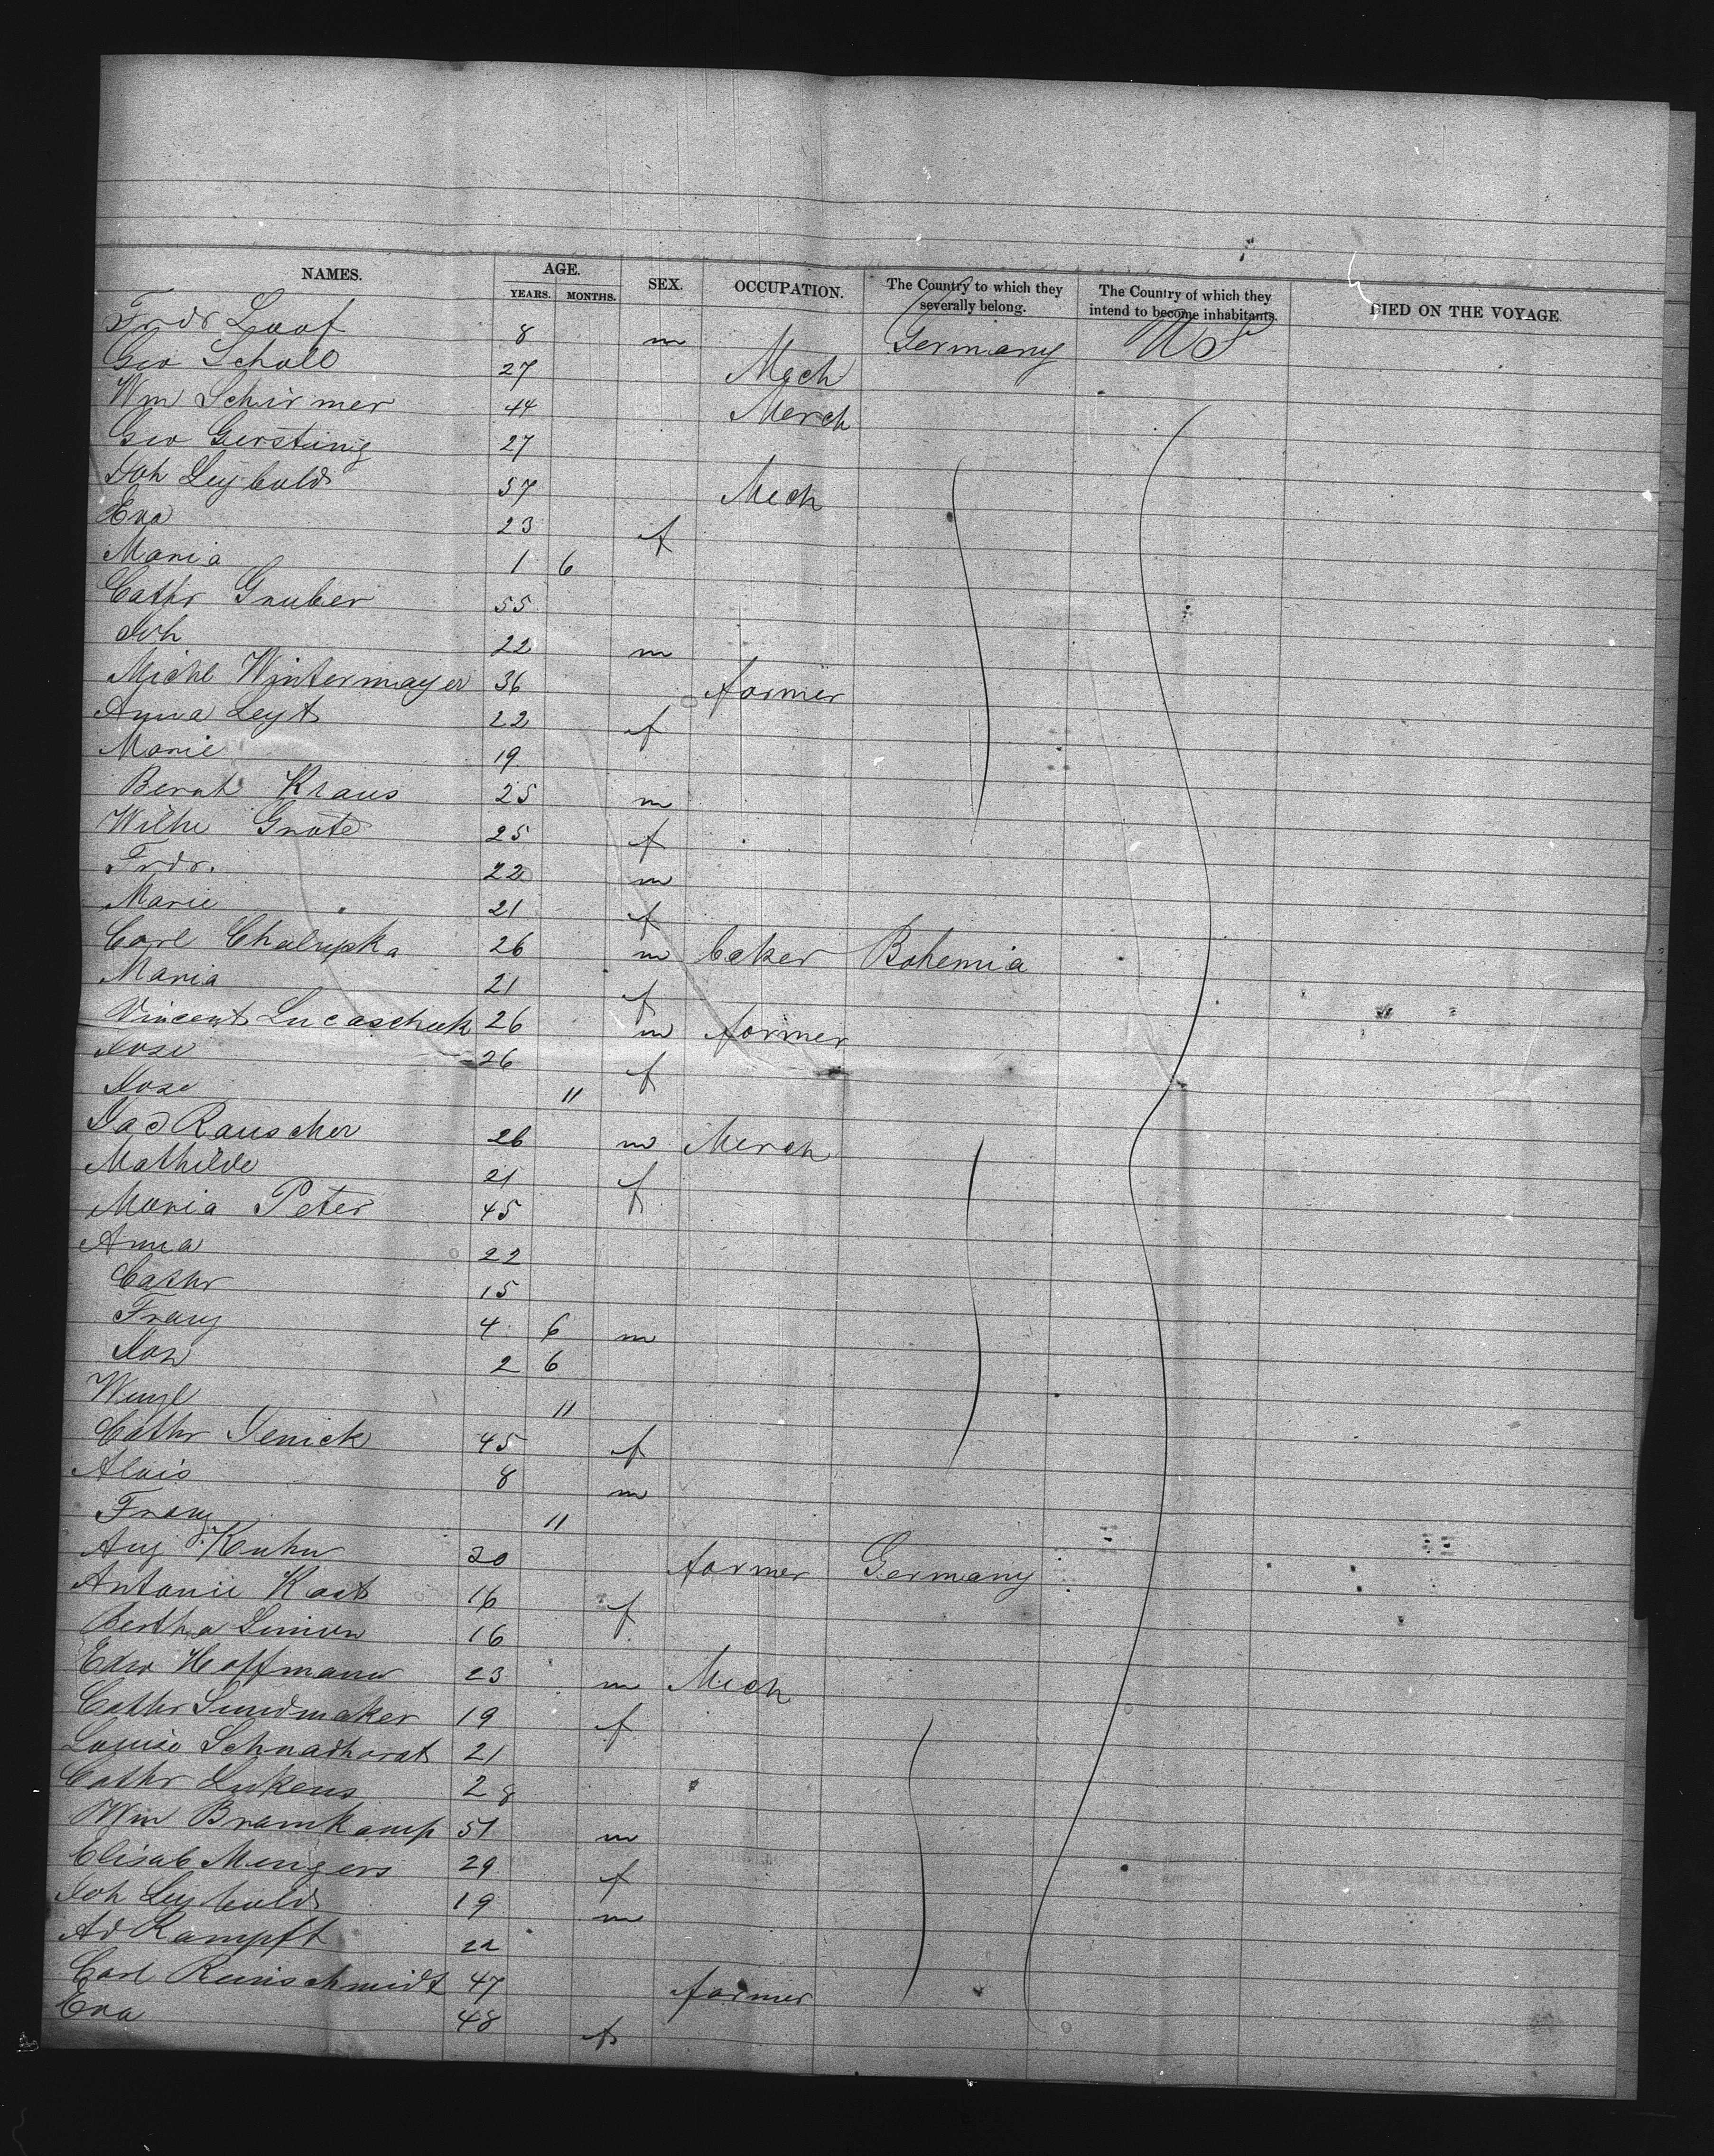 NAMES. AGE. SEX. OCCUPATION. The Country to which they severally belong. The Country of which they intend to become inhabitants. DIED ON THE VOYAGE.
YEARS. MONTHS.
Frdr Loof 8 m Germany U S
Geo Scholl 27 Mech
Wm Schirmer 44 Merch
Geo Gersting 27
Joh Leybold 57 Mech
Eva 23 f
Maria 1 6
Cathr Gruber 55
Joh 22 m
Michl Wintermayer 36 farmer
Anna Leyt 22 f
Marie 19
Bernh Kraus 25 m
Wilhe Grote 25 f
Frdr. 22 m
Marie 21 f
Carl Chalupka 26 m baker Bohemia
Maria 21 f
Vincent Lucaschek 26 m farmer
Jose 26 f
Jose 11
Rauscher 26 m Merch
Mathilde 21 f
Maria Peter 45
Anna 22
Cathr 15
Franz 4 6 m
Jos 2 6
Wenzl 11
Cathr Jenick 45 f
Alois 8 m
Franz 11
Aug Kuhn 20 farmer Germany
Antonie Kost 16 f
Bertha Simon 16
Edw Hoffmann 23 m Mech
Cathr Sundmaker 19 f
Louise Schnadhorst 21
Cathr Lukens 28
Wm Bramkamp 51 m
Elisab Mengers 29 f
Joh Leybold 19 m
Ad Rampft 22
Carl Reinschmidt 47 farmer
Eva 48 f